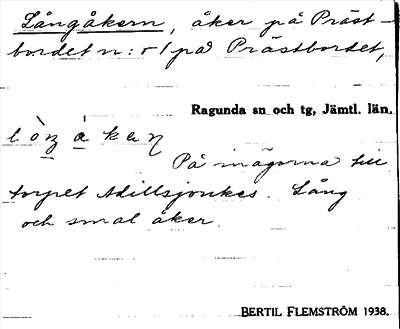 Långåkern, åker på Präst-
bordet n:r 1 på Prästbordet,
Ragunda sn och tg, Jämtl. län.
På inägorna till
torpet Adillsjonkes. Lång
och smal åker.
BERTIL FLEMSTRÖM 1938.